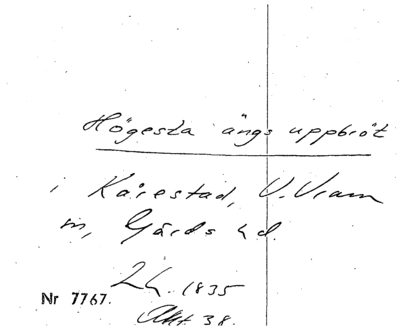 Högesta ängs uppbröt
i Kårestad, V. Vram
m, Gärds hd.
2 h. 1835
Nr 7767.
Akt 38.